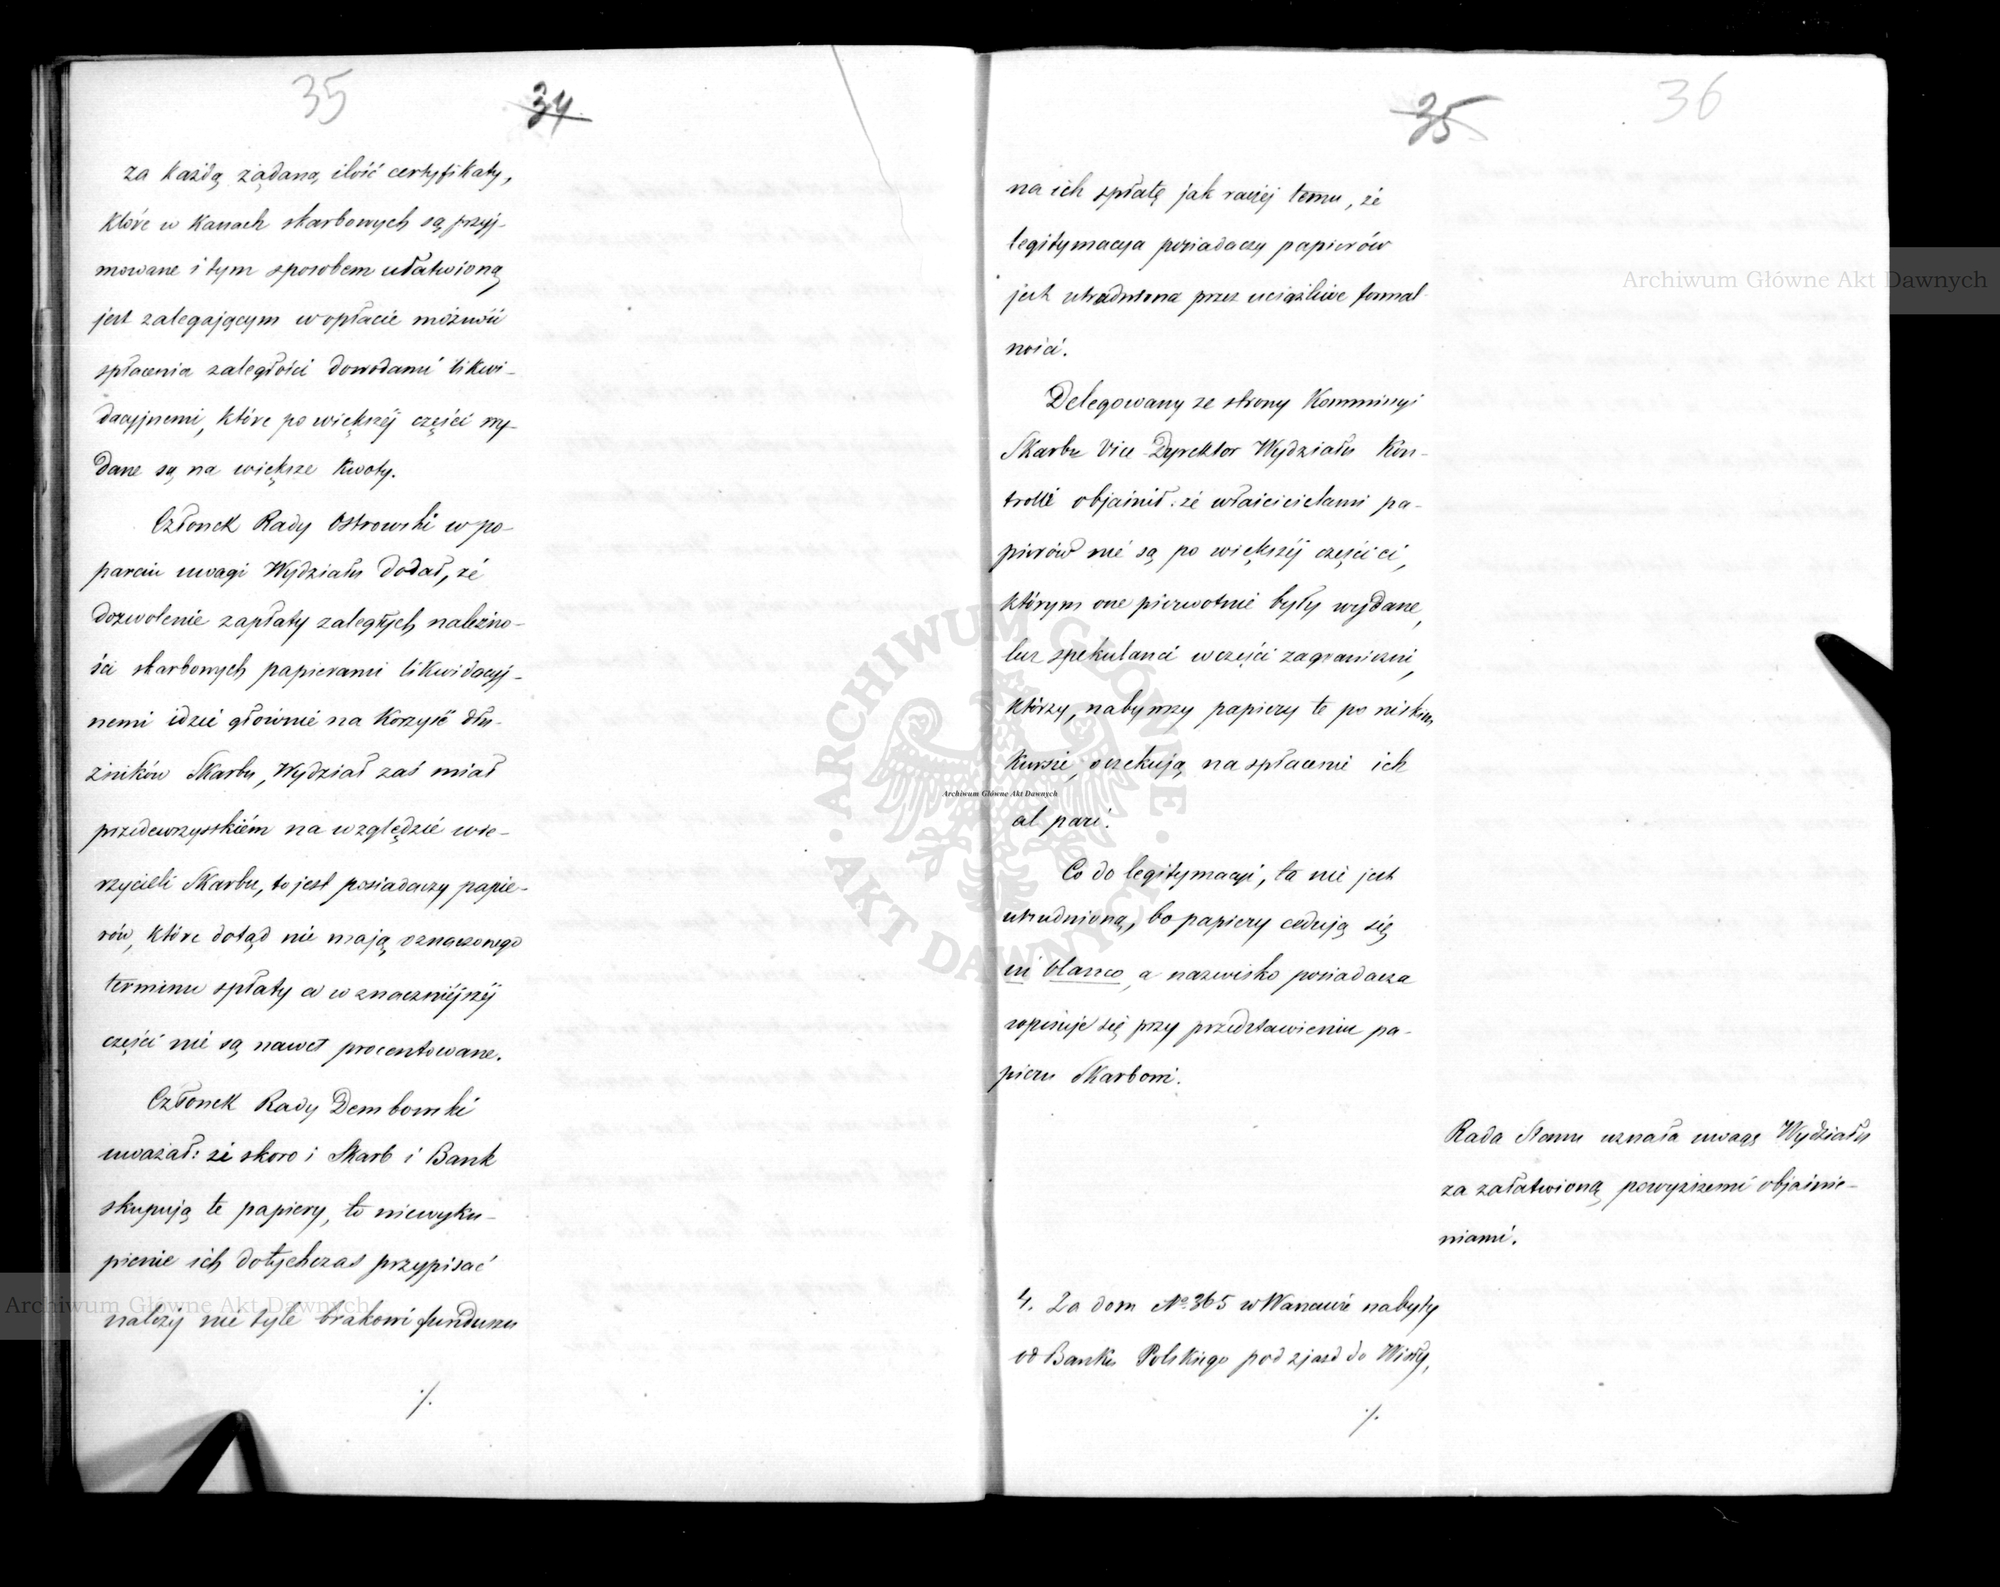 35
34
za każdą żądaną ilość certyfikaty,
które w Kassach skarbowych są przyj-
mowane i tym sposobem ułatwioną
jest zalegającym w opłacie możność
spłacenia zaległości dowodami likwi-
dacyjnemi, które po większéj części wy-
dane są na większe kwoty.
Członek Rady Ostrowski w po-
parciu uwagi Wydziału dodał, że
dozwolenie zapłaty zaległych należno-
ści skarbowych papierami likwidacyj-
nemi idzie głównie na korzyść dłu-
żników Skarbu, Wydział zaś miał
przedewszystkiém na względzie wie-
rzycieli Skarbu, to jest posiadaczy papie-
rów, które dotąd nie mają oznaczonego
terminu spłaty a w znaczniéjszéj
części nie są nawet procentowane.
Członek Rady Dembowski
uważał: że skoro i Skarb i Bank
skupują te papiery, to niewyku-
pienie ich dotychczas przypisać
należy nie tyle brakowi funduszu
./.
35
36
na ich spłatę jak raczéj temu, że
legitymacya posiadaczy papierów
jest utrudniona przez uciążliwe formal-
ności.
Delegowany ze strony Kommissyi
Skarbu Vice-Dyrektor Wydziału Kon-
trolli objaśnił: że właścicielami pa-
pierów nie są po większéj części ci,
którym one pierwotnie były wydane,
lecz spekulanci w części zagraniczni,
którzy, nabywszy papiery te po niskim
kursie, oczekują na spłacenie ich
al pari.
Co do legitymacyi, ta nie jest
utrudnioną, bo papiery cedują się
in blanco, a nazwisko posiadacza
wpisuje się przy przedstawieniu pa-
pieru Skarbowi.
Rada Stanu uznała uwagę Wydziału
za załatwioną powyższemi objaśnie-
niami.
4. Za dom No 365 w Warszawie nabyty
od Banku Polskiego pod zjazd do Wisły,
./.
Archiwum Główne Akt Dawnych
Archiwum Główne Akt Dawnych
Archiwum Główne Akt Dawnych
ARCHIWUM GŁÓWNE · AKT DAWNYCH ·